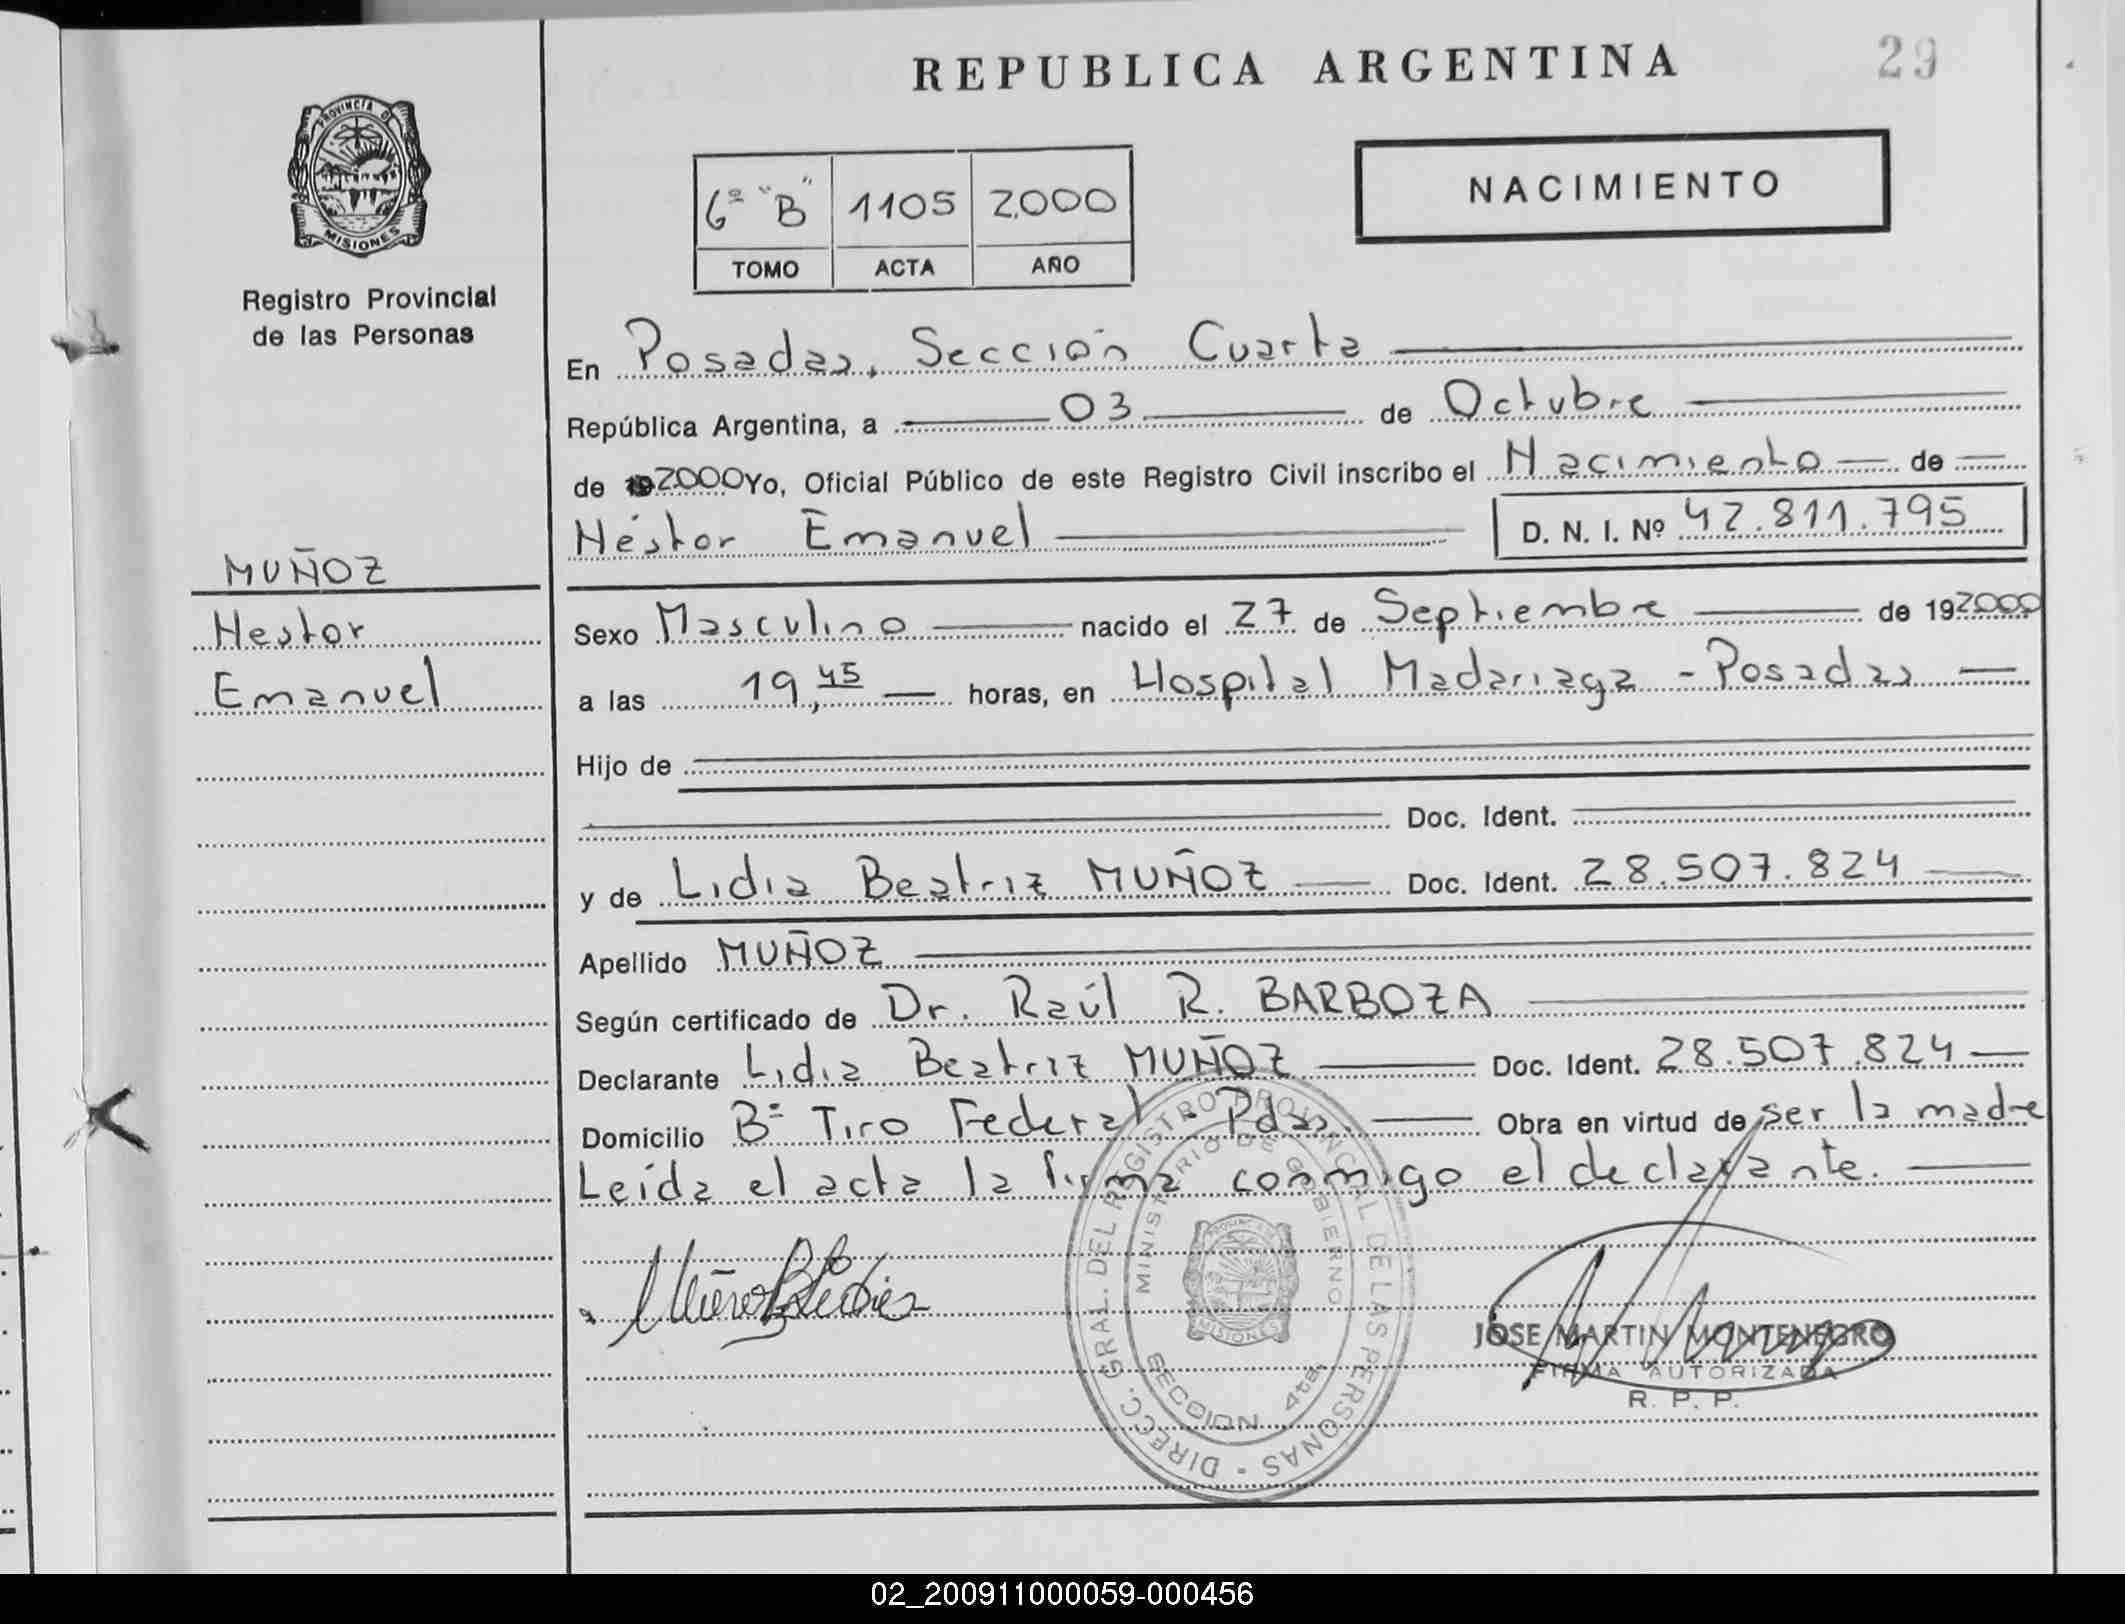 REPUBLICA ARGENTINA
29
PROVINCIA D
MISIONES
Registro Provincial
de las Personas
6º "B" 1105 2000
TOMO ACTA AÑO
NACIMIENTO
En Posadas, Sección Cuarta
República Argentina, a 03 de Octubre
de 192000 Yo, Oficial Público de este Registro Civil inscribo el Nacimiento de
Néstor Emanuel D. N. I. Nº 42.811.795
MUÑOZ
Nestor
Emanuel
Sexo Masculino nacido el 27 de Septiembre de 192000
a las 19,45 horas, en Hospital Madariaga - Posadas
Hijo de
Doc. Ident.
y de Lidia Beatriz MUÑOZ Doc. Ident. 28.507.824
Apellido MUÑOZ
Según certificado de Dr. Raúl R. BARBOZA
Declarante Lidia Beatriz MUÑOZ Doc. Ident. 28.507.824
Domicilio Bº Tiro Federal - Pdas. Obra en virtud de ser la madre
Leída el acta la firma conmigo el declarante.
DIRECC. GRAL. DEL REGISTRO PROVINCIAL DE LAS PERSONAS -
MINISTERIO DE GOBIERNO
MISIONES
SECCION 4ta.
Muñoz B Lidia
JOSE MARTIN MONTENEGRO
FIRMA AUTORIZADA
R. P. P.
02_200911000059-000456